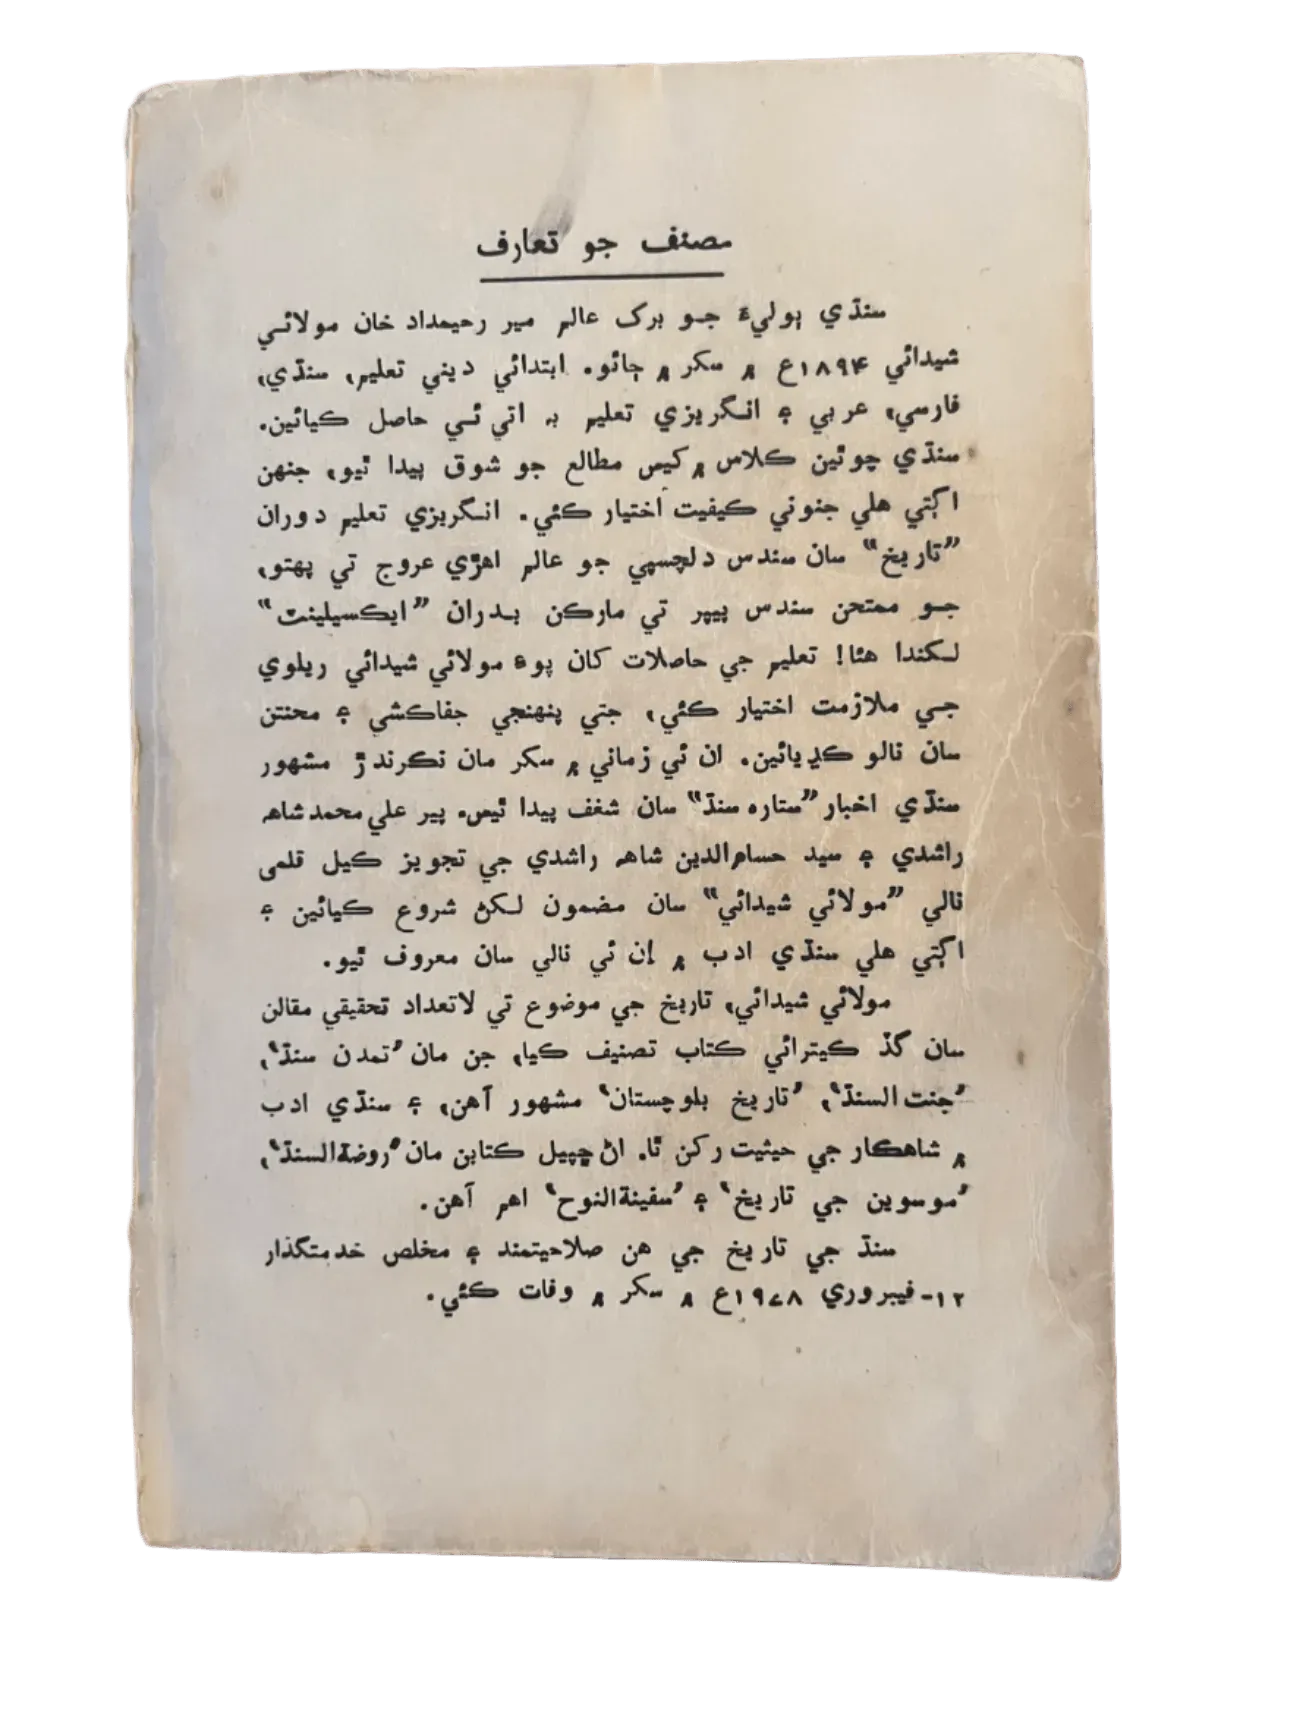 مصنف جو تعارف
سنڌي ٻوليءَ جو برک عالم مير رحيمداد خان مولائي
شيدائي ۱۸۹۴ع ۾ سکر ۾ ڄائو. ابتدائي ديني تعليم، سنڌي،
فارسي، عربي ۽ انگريزي تعليم به اتي ئي حاصل ڪيائين.
سنڌي چوٿين ڪلاس ۾ کيس مطالع جو شوق پيدا ٿيو، جنهن
اڳتي هلي جنوني ڪيفيت اختيار ڪئي. انگريزي تعليم دوران
”تاريخ“ سان سندس دلچسپي جو عالم اهڙي عروج تي پهتو،
جو ممتحن سندس پيپر تي مارڪن بدران ”ايڪسيلينٽ“
لکندا هئا! تعليم جي حاصلات کان پوءِ مولائي شيدائي ريلوي
جي ملازمت اختيار ڪئي، جتي پنهنجي جفاڪشي ۽ محنتن
سان نالو ڪڍيائين. ان ئي زماني ۾ سکر مان نڪرندڙ مشهور
سنڌي اخبار ”ستاره سنڌ“ سان شغف پيدا ٿيس. پير علي محمد شاهه
راشدي ۽ سيد حسام الدين شاهه راشدي جي تجويز ڪيل قلمی
نالي ”مولائي شيدائي“ سان مضمون لکڻ شروع ڪيائين ۽
اڳتي هلي سنڌي ادب ۾ اِن ئي نالي سان معروف ٿيو.
مولائي شيدائي، تاريخ جي موضوع تي لاتعداد تحقيقي مقالن
سان گڏ ڪيترائي ڪتاب تصنيف ڪيا، جن مان ’تمدن سنڌ‘،
’جنت السنڌ‘، ’تاريخ بلوچستان‘ مشهور آهن، ۽ سنڌي ادب
۾ شاهڪار جي حيثيت رکن ٿا. اڻ ڇپيل ڪتابن مان ’روضة السنڌ‘،
’موسوين جي تاريخ‘ ۽ ’سفينة النوح‘ اهم آهن.
سنڌ جي تاريخ جي هن صلاحيتمند ۽ مخلص خدمتگذار
۱۲- فيبروري ۱۹۷۸ع ۾ سکر ۾ وفات ڪئي.